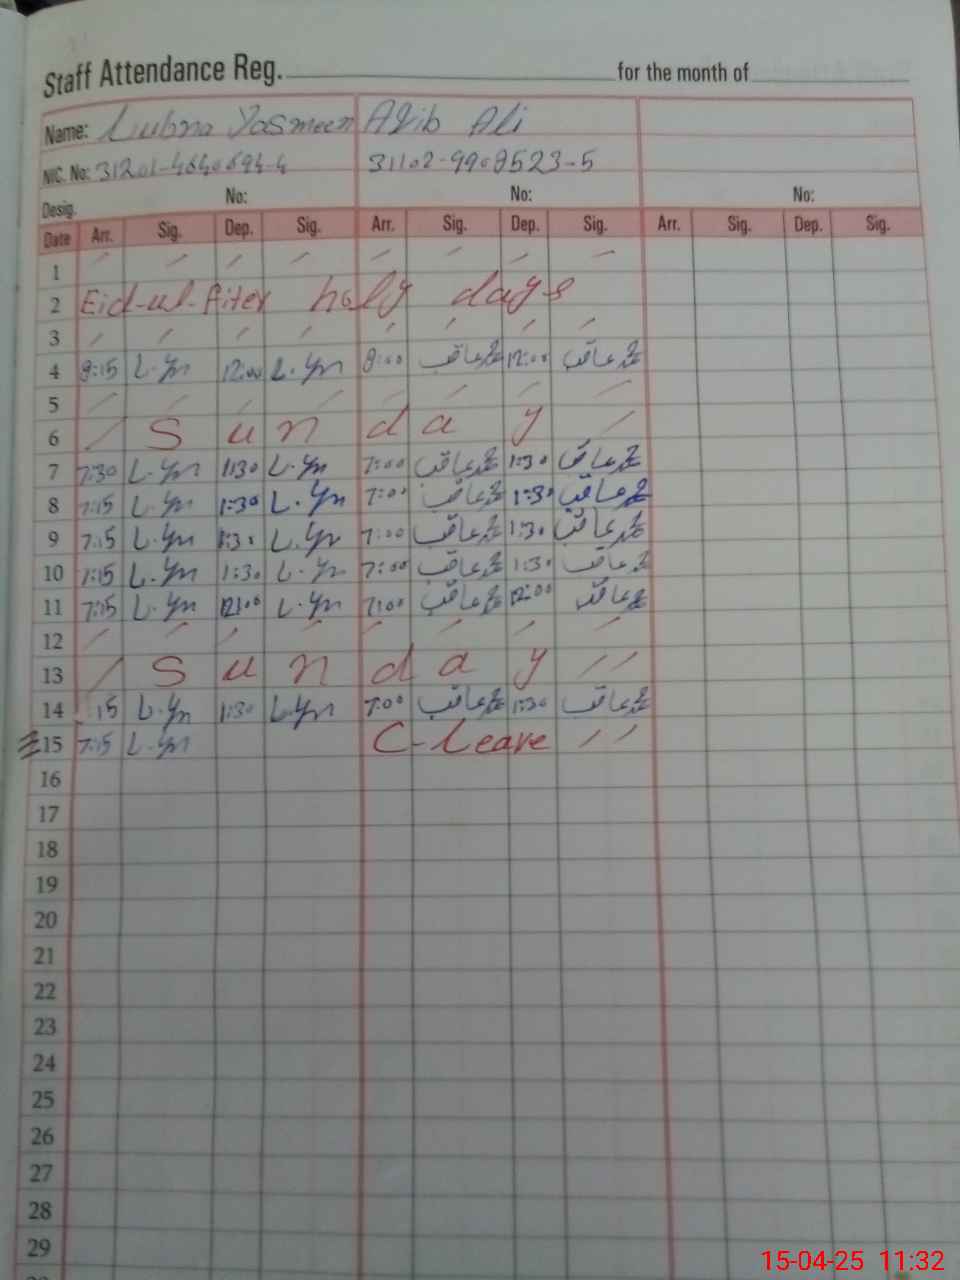 Staff Attendance Reg. for the month of
Name: Lubna Yasmeen Aqib Ali
NIC. No: 31201-4640694-4 31102-9908523-5
Desig. No: No: No:
Date Arr. Sig. Dep. Sig. Arr. Sig. Dep. Sig. Arr. Sig. Dep. Sig.
1
2 Eid-ul-fiter holy days
3
4 8:15 L.Yn 12:00 L.Yn 8:00 محمد عاقب 12:00 محمد عاقب
5
6 Sunday
7 7:30 L.Yn 1:30 L.Yn 7:00 محمد عاقب 1:30 محمد عاقب
8 7:15 L.Yn 1:30 L.Yn 7:00 محمد عاقب 1:30 محمد عاقب
9 7:15 L.Yn 1:30 L.Yn 7:00 محمد عاقب 1:30 محمد عاقب
10 7:15 L.Yn 1:30 L.Yn 7:00 محمد عاقب 1:30 محمد عاقب
11 7:15 L.Yn 12:00 L.Yn 7:00 محمد عاقب 12:00 محمد عاقب
12
13 Sunday
14 :15 L.Yn 1:30 L.Yn 7:00 محمد عاقب 1:30 محمد عاقب
15 7:15 L.Yn C-Leave
16
17
18
19
20
21
22
23
24
25
26
27
28
29
15-04-25 11:32